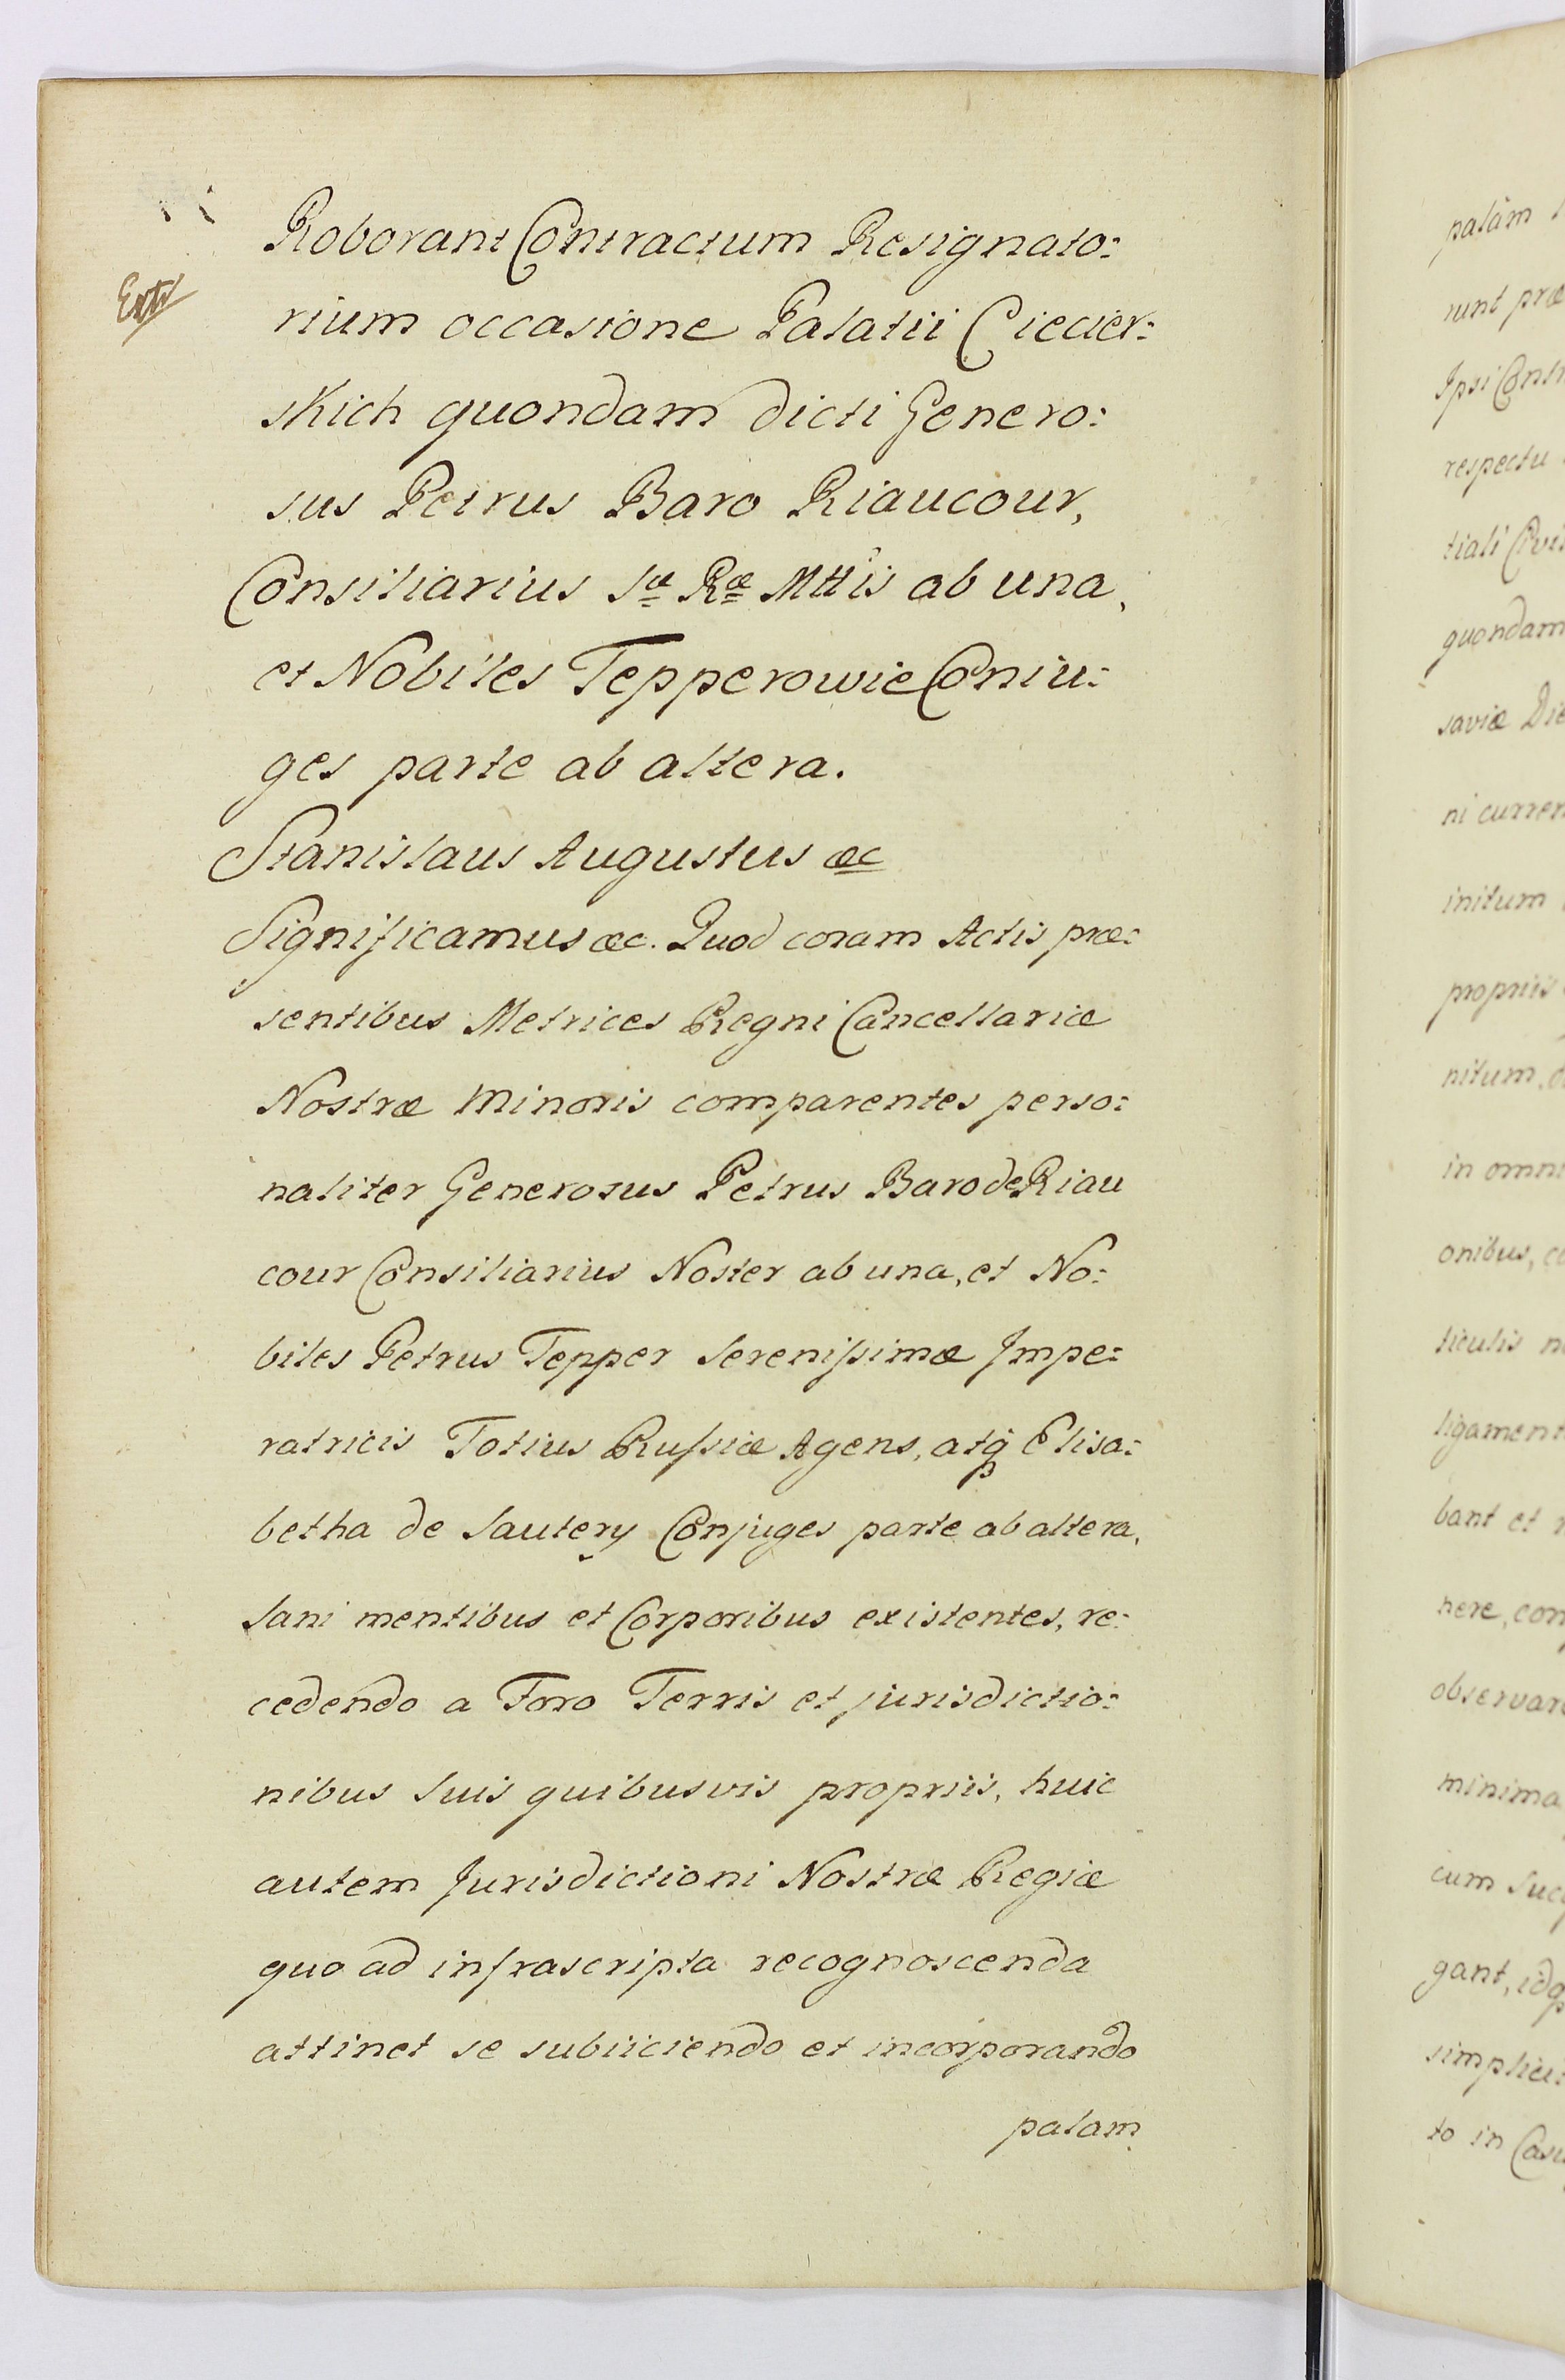 Roborant Contractum Resignato:
Extr
rium occasione Palatii Ciecier:
skich quondam dicti Genero:
sus Petrus Baro Riaucour,
Consiliarius Sæ Ræ Mttis ab una,
et Nobiles Tepperowie Coniu:
ges parte ab altera.
Stanislaus Augustus &c
Significamus &c. Quod coram Actis præ:
sentibus Metrices Regni Cancellariæ
Nostræ Minoris comparentes perso:
naliter Generosus Petrus Baro de Riau
cour Consiliarius Noster ab una, et No:
biles Petrus Tepper Serenissimæ Impe:
ratricis Totius Russiæ Agens, atq Elisa:
betha de Sautery Conjuges parte ab altera,
Sani mentibus et Corporibus existentes, re:
cedendo a Foro Terris et jurisdictio:
nibus Suis quibusvis propriis, huic
autem Jurisdictioni Nostræ Regiæ
quo ad infrascripta recognoscenda
attinet se subiiciendo et incorporando
palam
palàm
runt præ
Ipsi
respectu
tiali
quondam
saviæ
ni curren
initum
propriis
nitum,
in omni
onibus,
ticulis
ligament
bant et
here, con
observar
minima
cum Suc
gant, idq
simplici
to in Casu